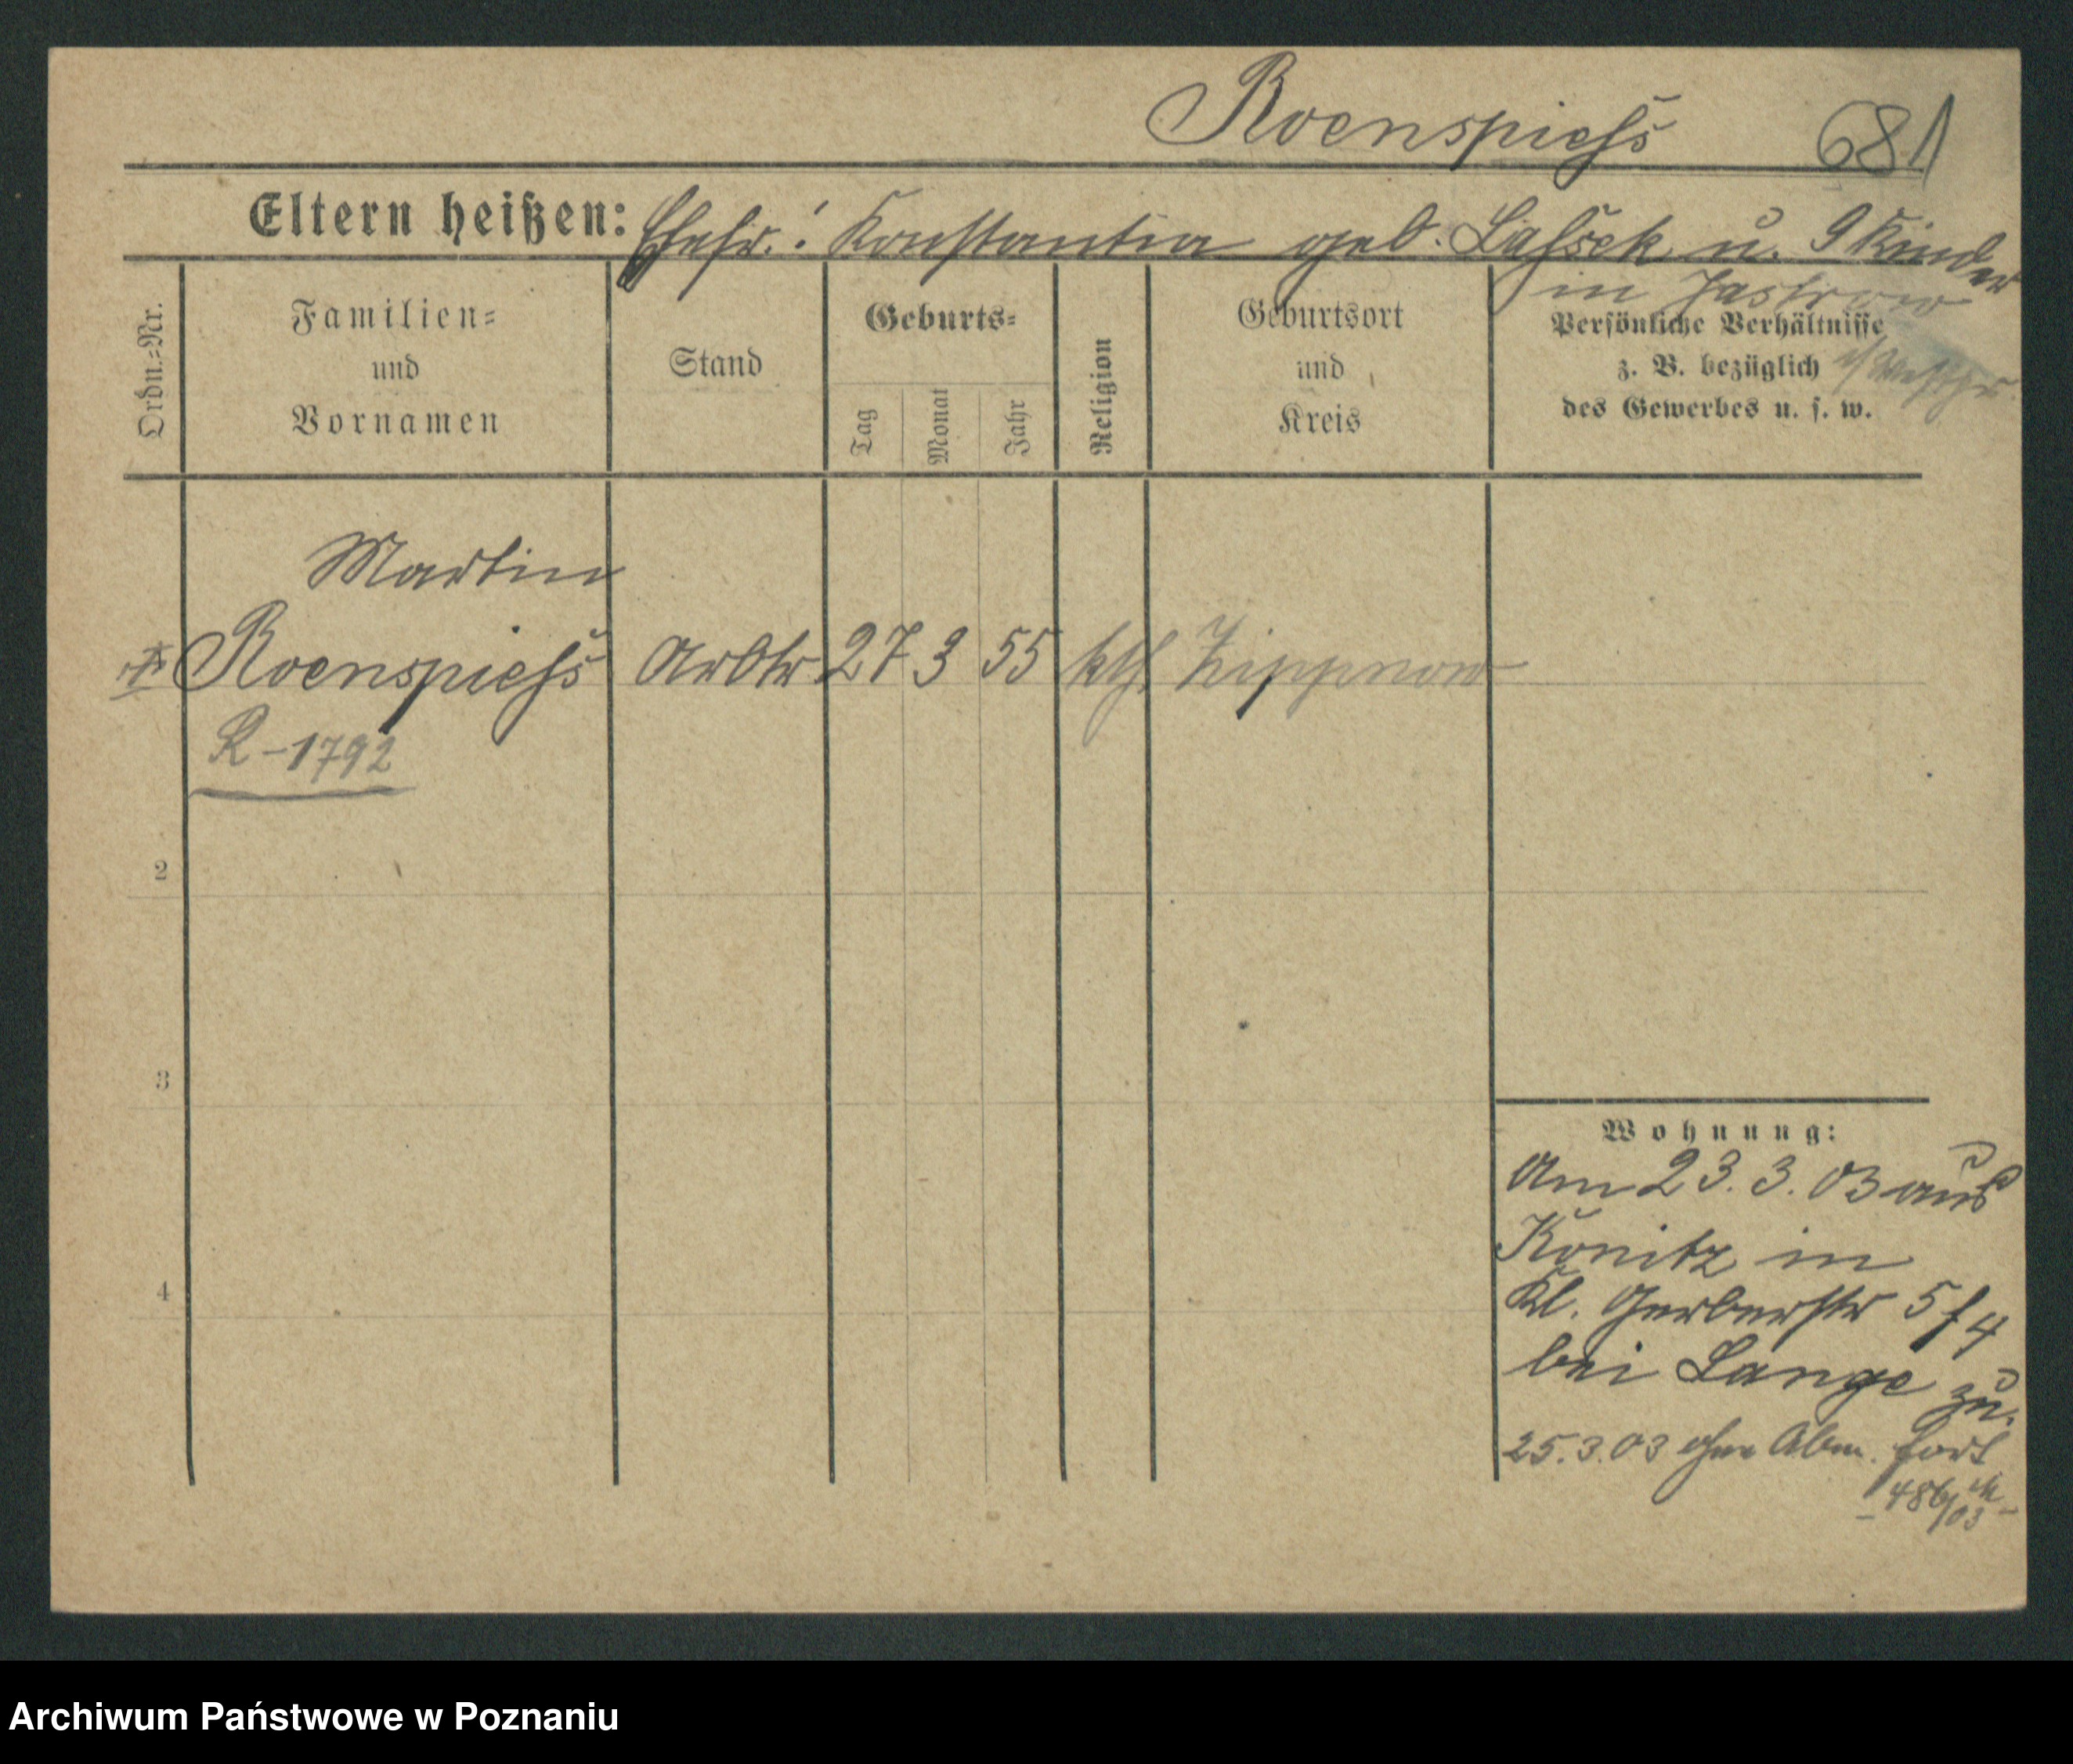 Roenspiess 681
Eltern heißen: Ehefr.: Konstantia geb. Lassek u. 9 Kinder
in Jastrow
i/ Westpr.
Ordn.=Nr.
Familien=
und
Vornamen
Stand
Geburts=
Tag
Monat
Jahr
Religion
Geburtsort
und
Kreis
Persönliche Verhältnisse
z. B. bezüglich
des Gewerbes u. s. w.
Martin
Roenspiess Arbtr 27 3 55 kth. Zippnow
R-1792
2
3
4
Wohnung:
Am 23.3.03 aus
Konitz in
Kl. Gerberstr 5 f 4
bei Lange zu.
25.3.03 ohne Abm. fort
Archiwum Państwowe w Poznaniu